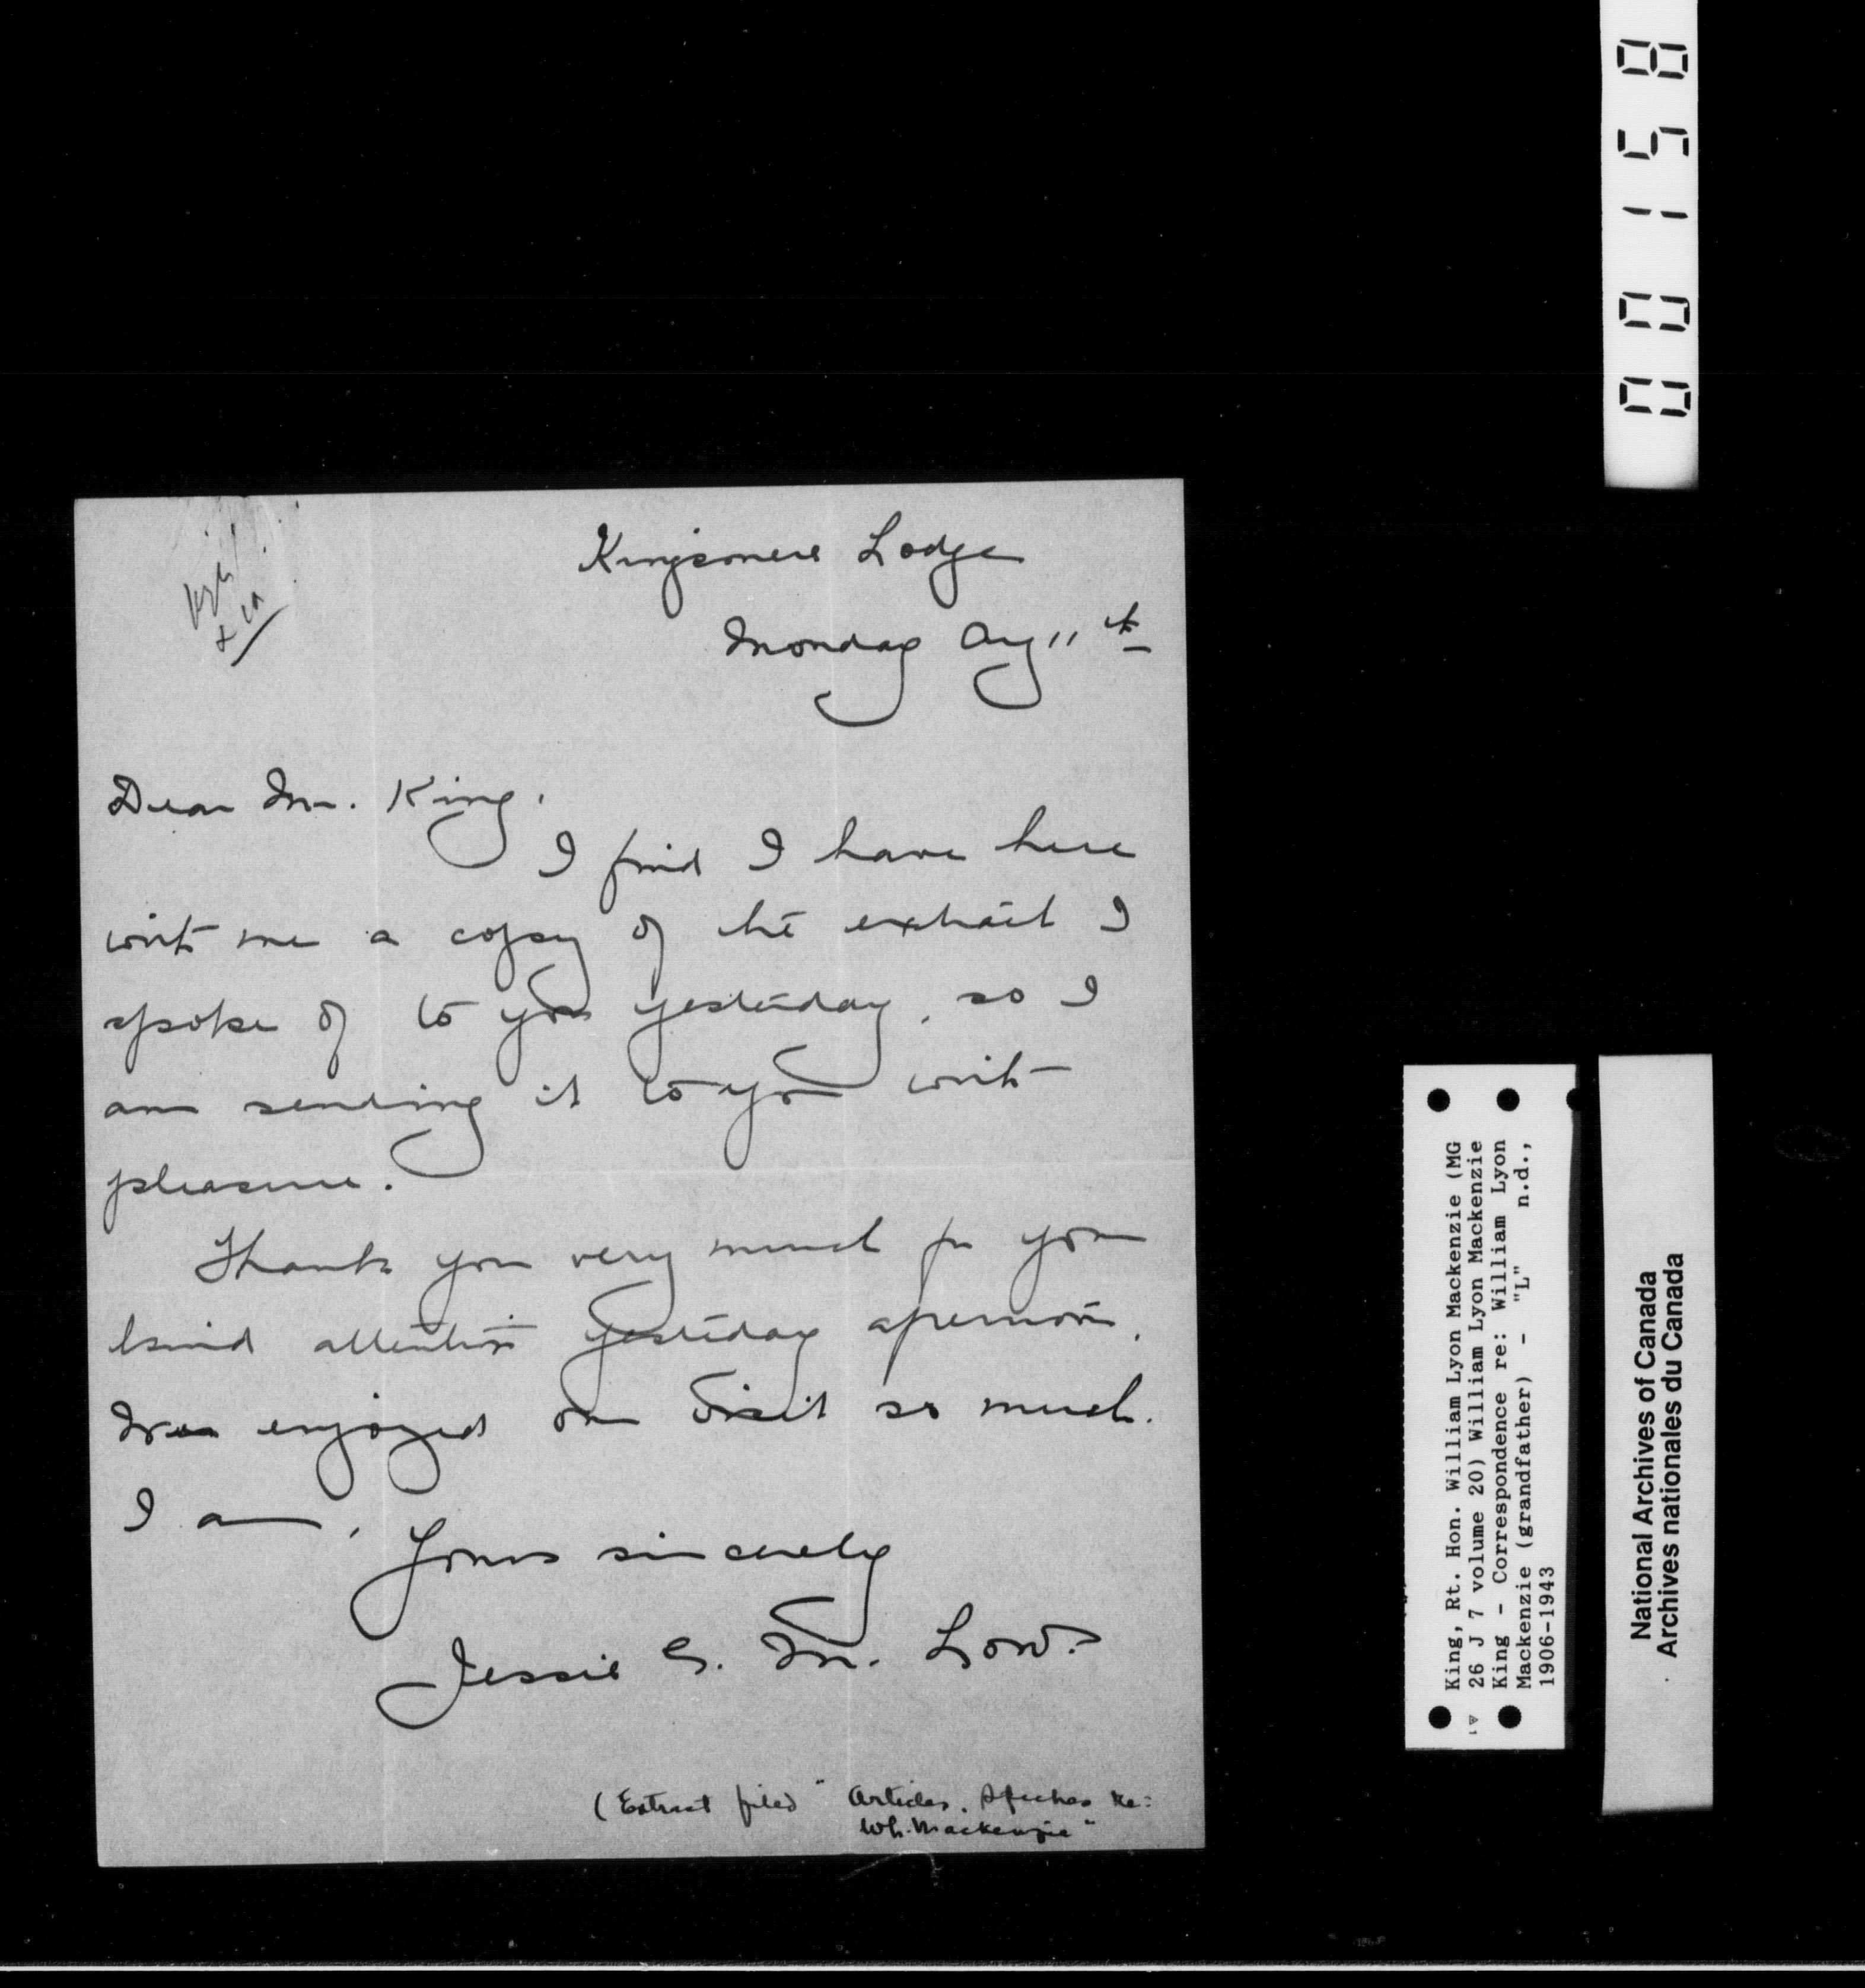 Kingsmere Lodge
Monday Aug 11th
Dear Mr. King,
I find I have here
with me a copy of the extract I
spoke of to you yesterday, so I
am sending it to you with
pleasure.
Thank you very much for your
kind attention yesterday afternoon.
We enjoyed our visit so much.
I am,
Yours sincerely
Jessie G. M. Low.
(Extract filed "Articles, Speeches Re:
W.L. Mackenzie"
00158
King, Rt. Hon. William Lyon Mackenzie (MG
26 J 7 volume 20) William Lyon Mackenzie
King - Correspondence re: William Lyon
Mackenzie (grandfather) - "L" n.d.,
1906-1943
National Archives of Canada
Archives nationales du Canada